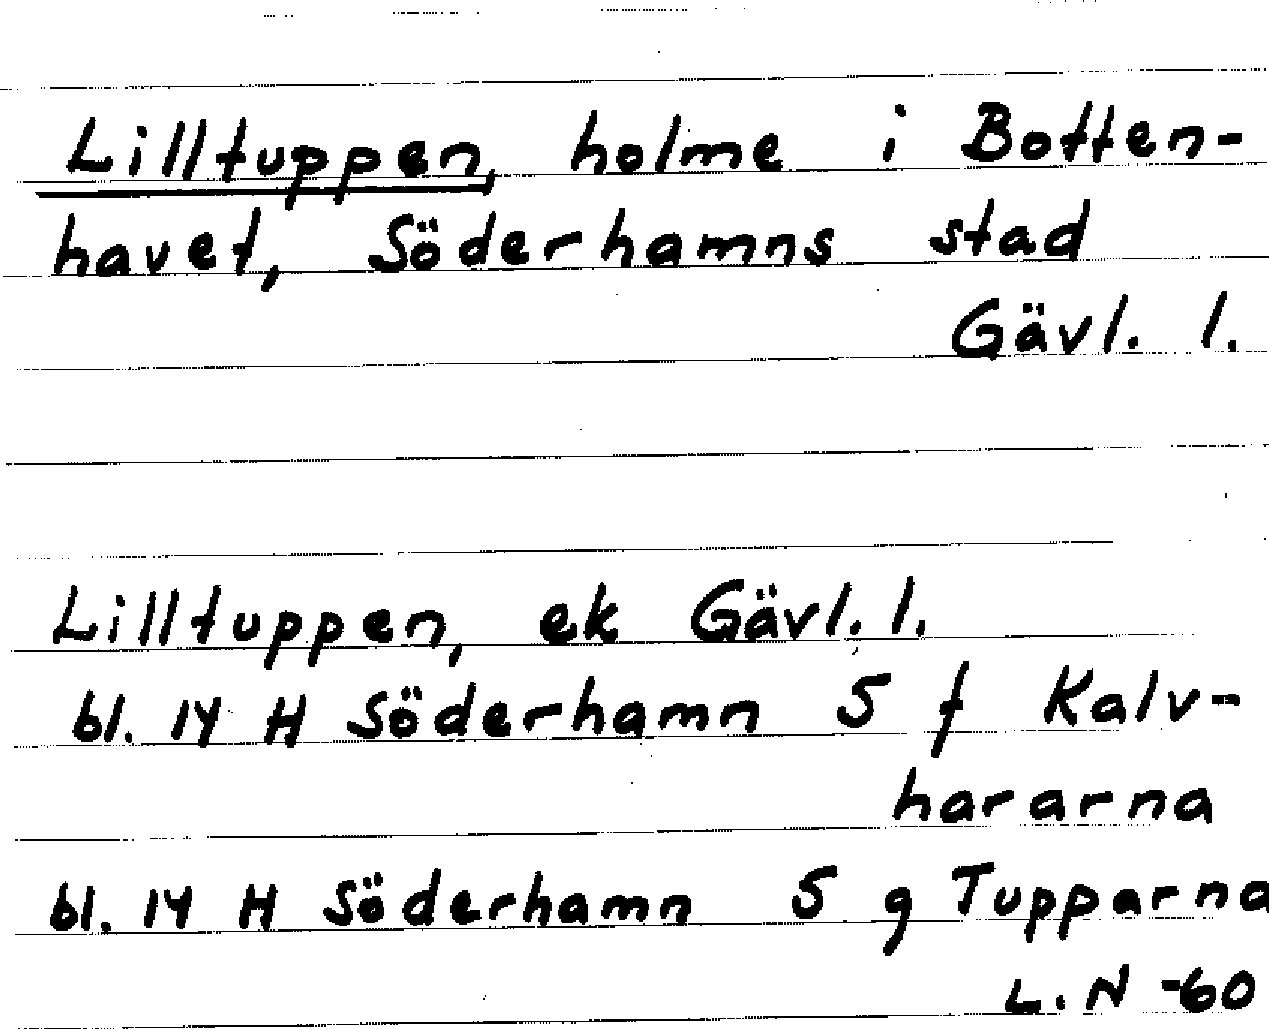 Lilltuppen, holme i Botten-
havet, Söderhamns stad
Gävl. l.
Lilltuppen, ek Gävl. l.
bl. 14 H Söderhamn 5 f Kalv-
hararna
bl. 14 H Söderhamn 5 g Tupparna
L. N -60